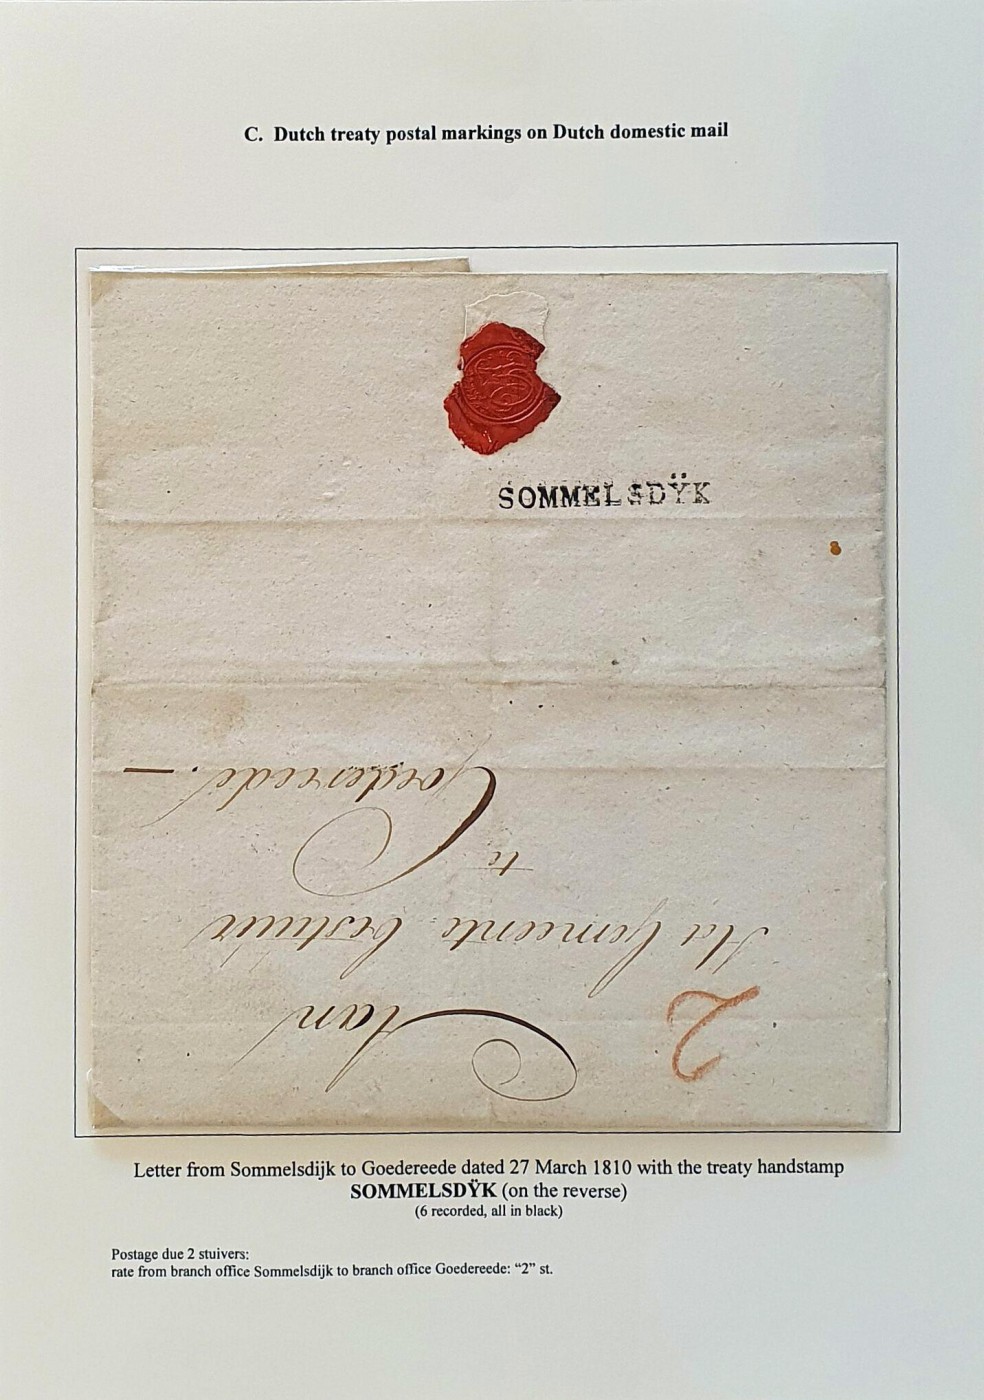 C. Dutch treaty postal markings on Dutch domestic mail
SOMMELSDŸK
Aan
Het Gemeente bestuur
te
Goedereede. —
2
Letter from Sommelsdijk to Goedereede dated 27 March 1810 with the treaty handstamp
SOMMELSDŸK (on the reverse)
(6 recorded, all in black)
Postage due 2 stuivers:
rate from branch office Sommelsdijk to branch office Goedereede: “2” st.